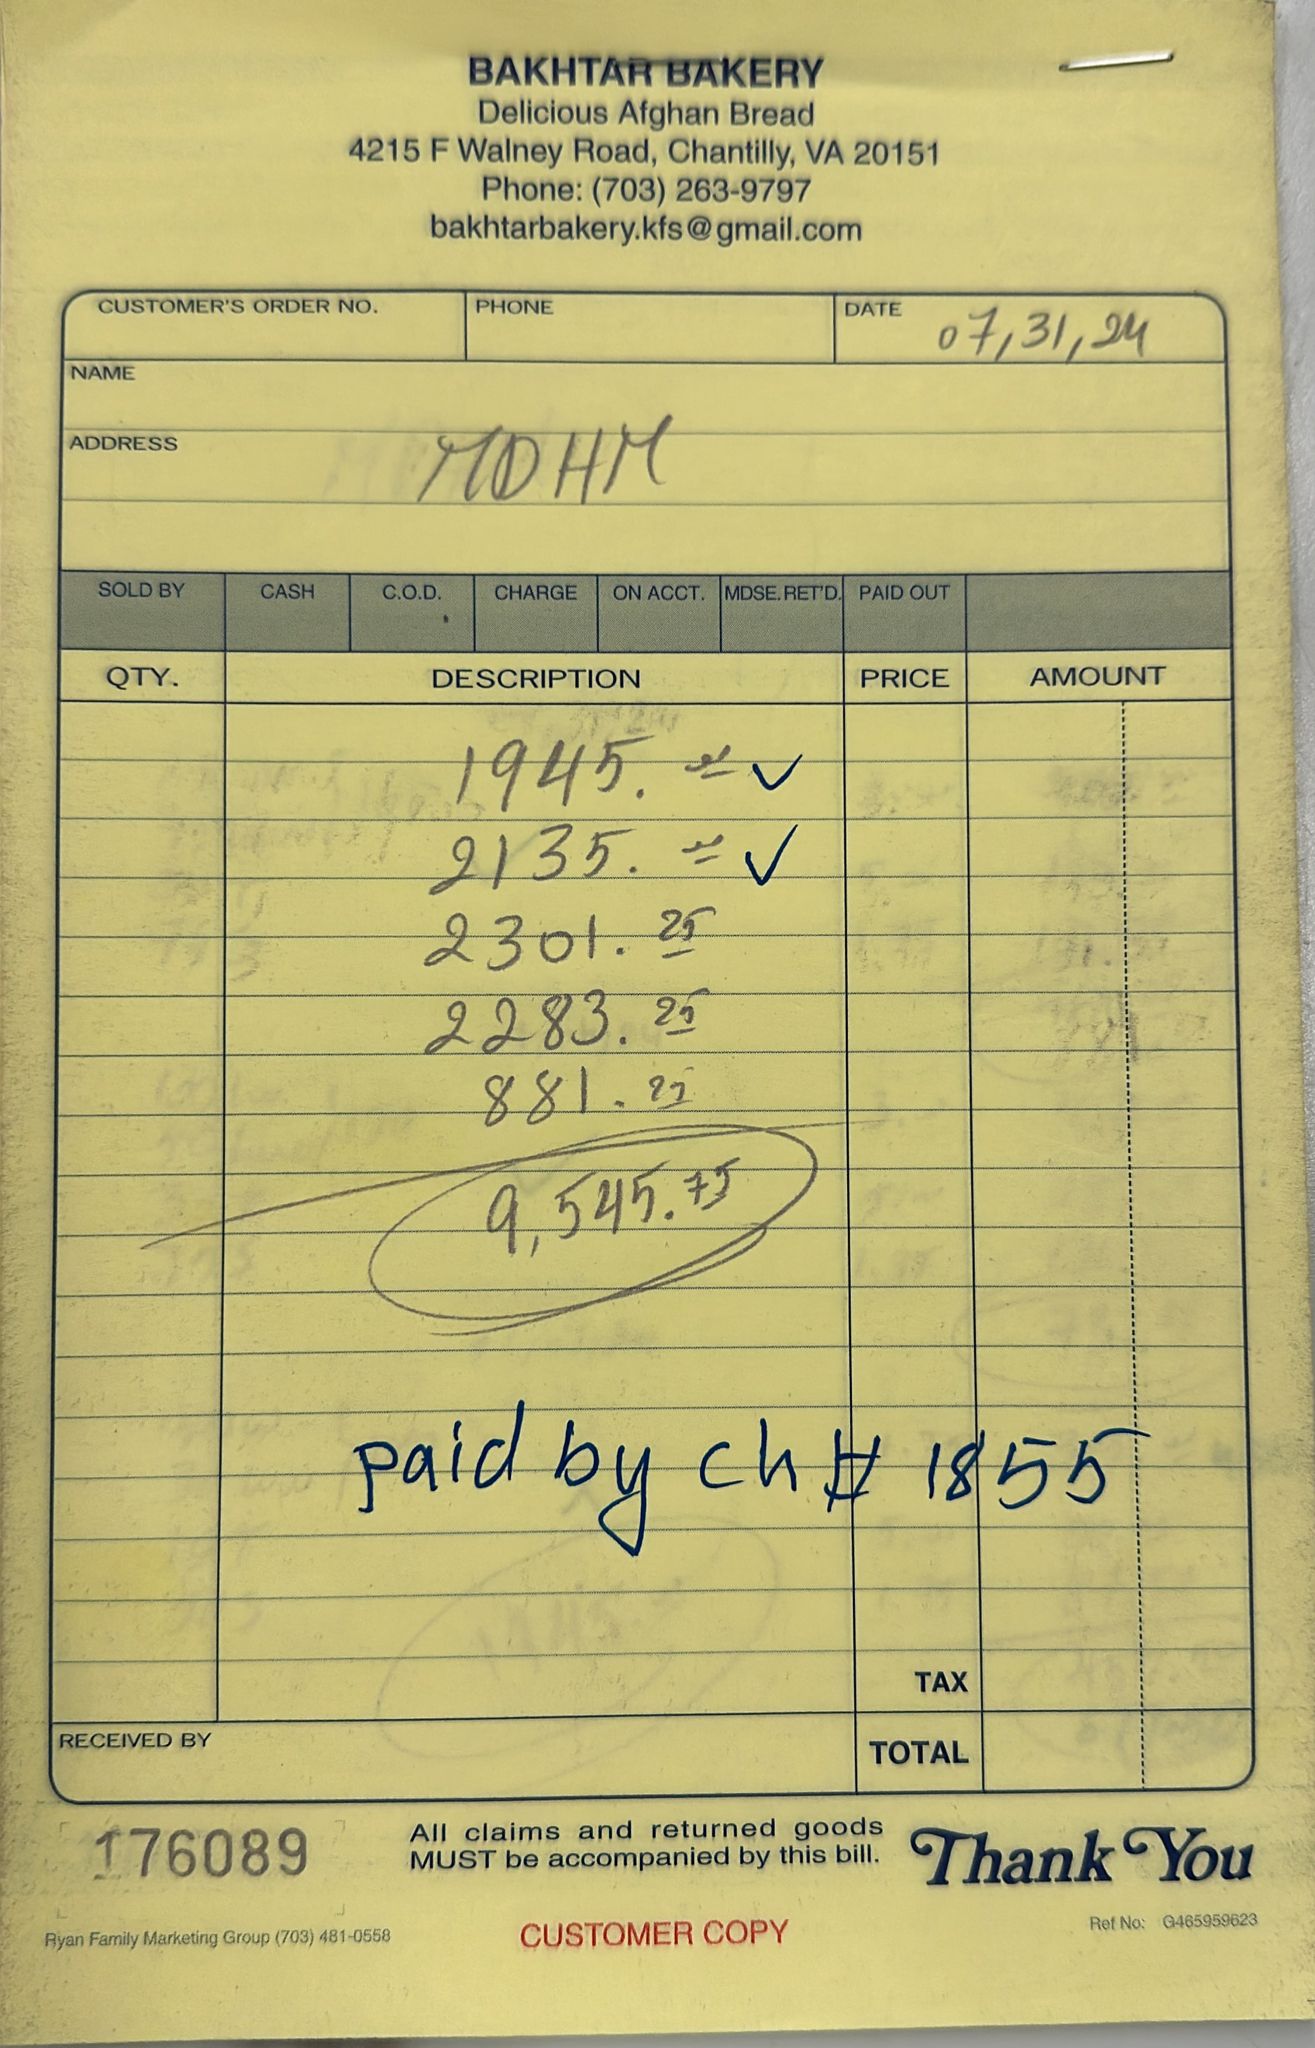 BAKHTAR BAKERY
Delicious Afghan Bread
4215 F Walney Road, Chantilly, VA 20151
Phone: (703) 263-9797
bakhtarbakery.kfs@gmail.com
CUSTOMER'S ORDER NO. PHONE DATE 07,31,24
NAME
ADDRESS MDHM
SOLD BY CASH C.O.D. CHARGE ON ACCT. MDSE. RET'D. PAID OUT
QTY. DESCRIPTION PRICE AMOUNT
1945. ✓
2135. ✓
2301.25
2283.25
881.25
9,545.75
paid by ch# 1855
TAX
RECEIVED BY TOTAL
176089
All claims and returned goods
MUST be accompanied by this bill.
Thank You
Ryan Family Marketing Group (703) 481-0558
CUSTOMER COPY
Ref No: G465959623